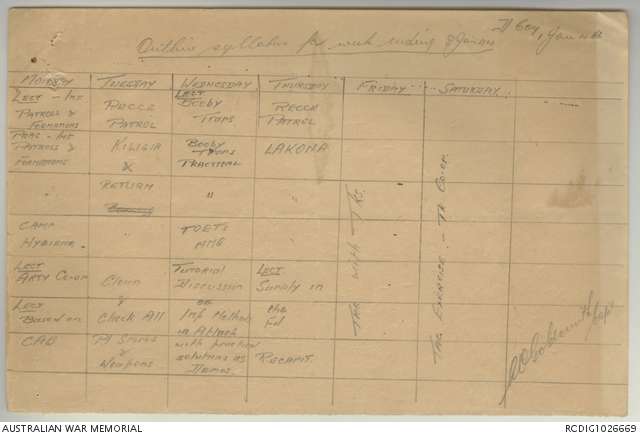 D Coy, Jan 44
Outline syllabus for week ending 8 Jan 44
MONDAY TUESDAY WEDNESDAY THURSDAY FRIDAY SATURDAY
LECT - Inf PATROLS & FORMATIONS
RECCE PATROL
LECT BOOBY TRAPS
RECCE PATROL
PRAC - Inf PATROLS & FORMATIONS
KILIGIA &
BOOBY TRAPS PRACTICAL
LAKONA
RETURN
"
CAMP HYGIENE
TOETS MMG
LECT ARTY CO-OP
Clean
TUTORIAL DISCUSSION
LECT Supply in
LECT Based on
& Check All
on Inf Methods in Attack
the Fd
CAO
PL STORES & WEAPONS
with practical solutions as Demos.
RECAPIT.
TAR with TKS.
TAC EXERCISE - TK CO-OP.
Capt
AUSTRALIAN WAR MEMORIAL
RCDIG1026669